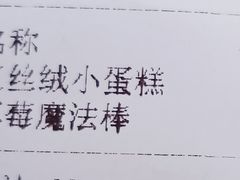 名称
丝绒小蛋糕
莓魔法棒